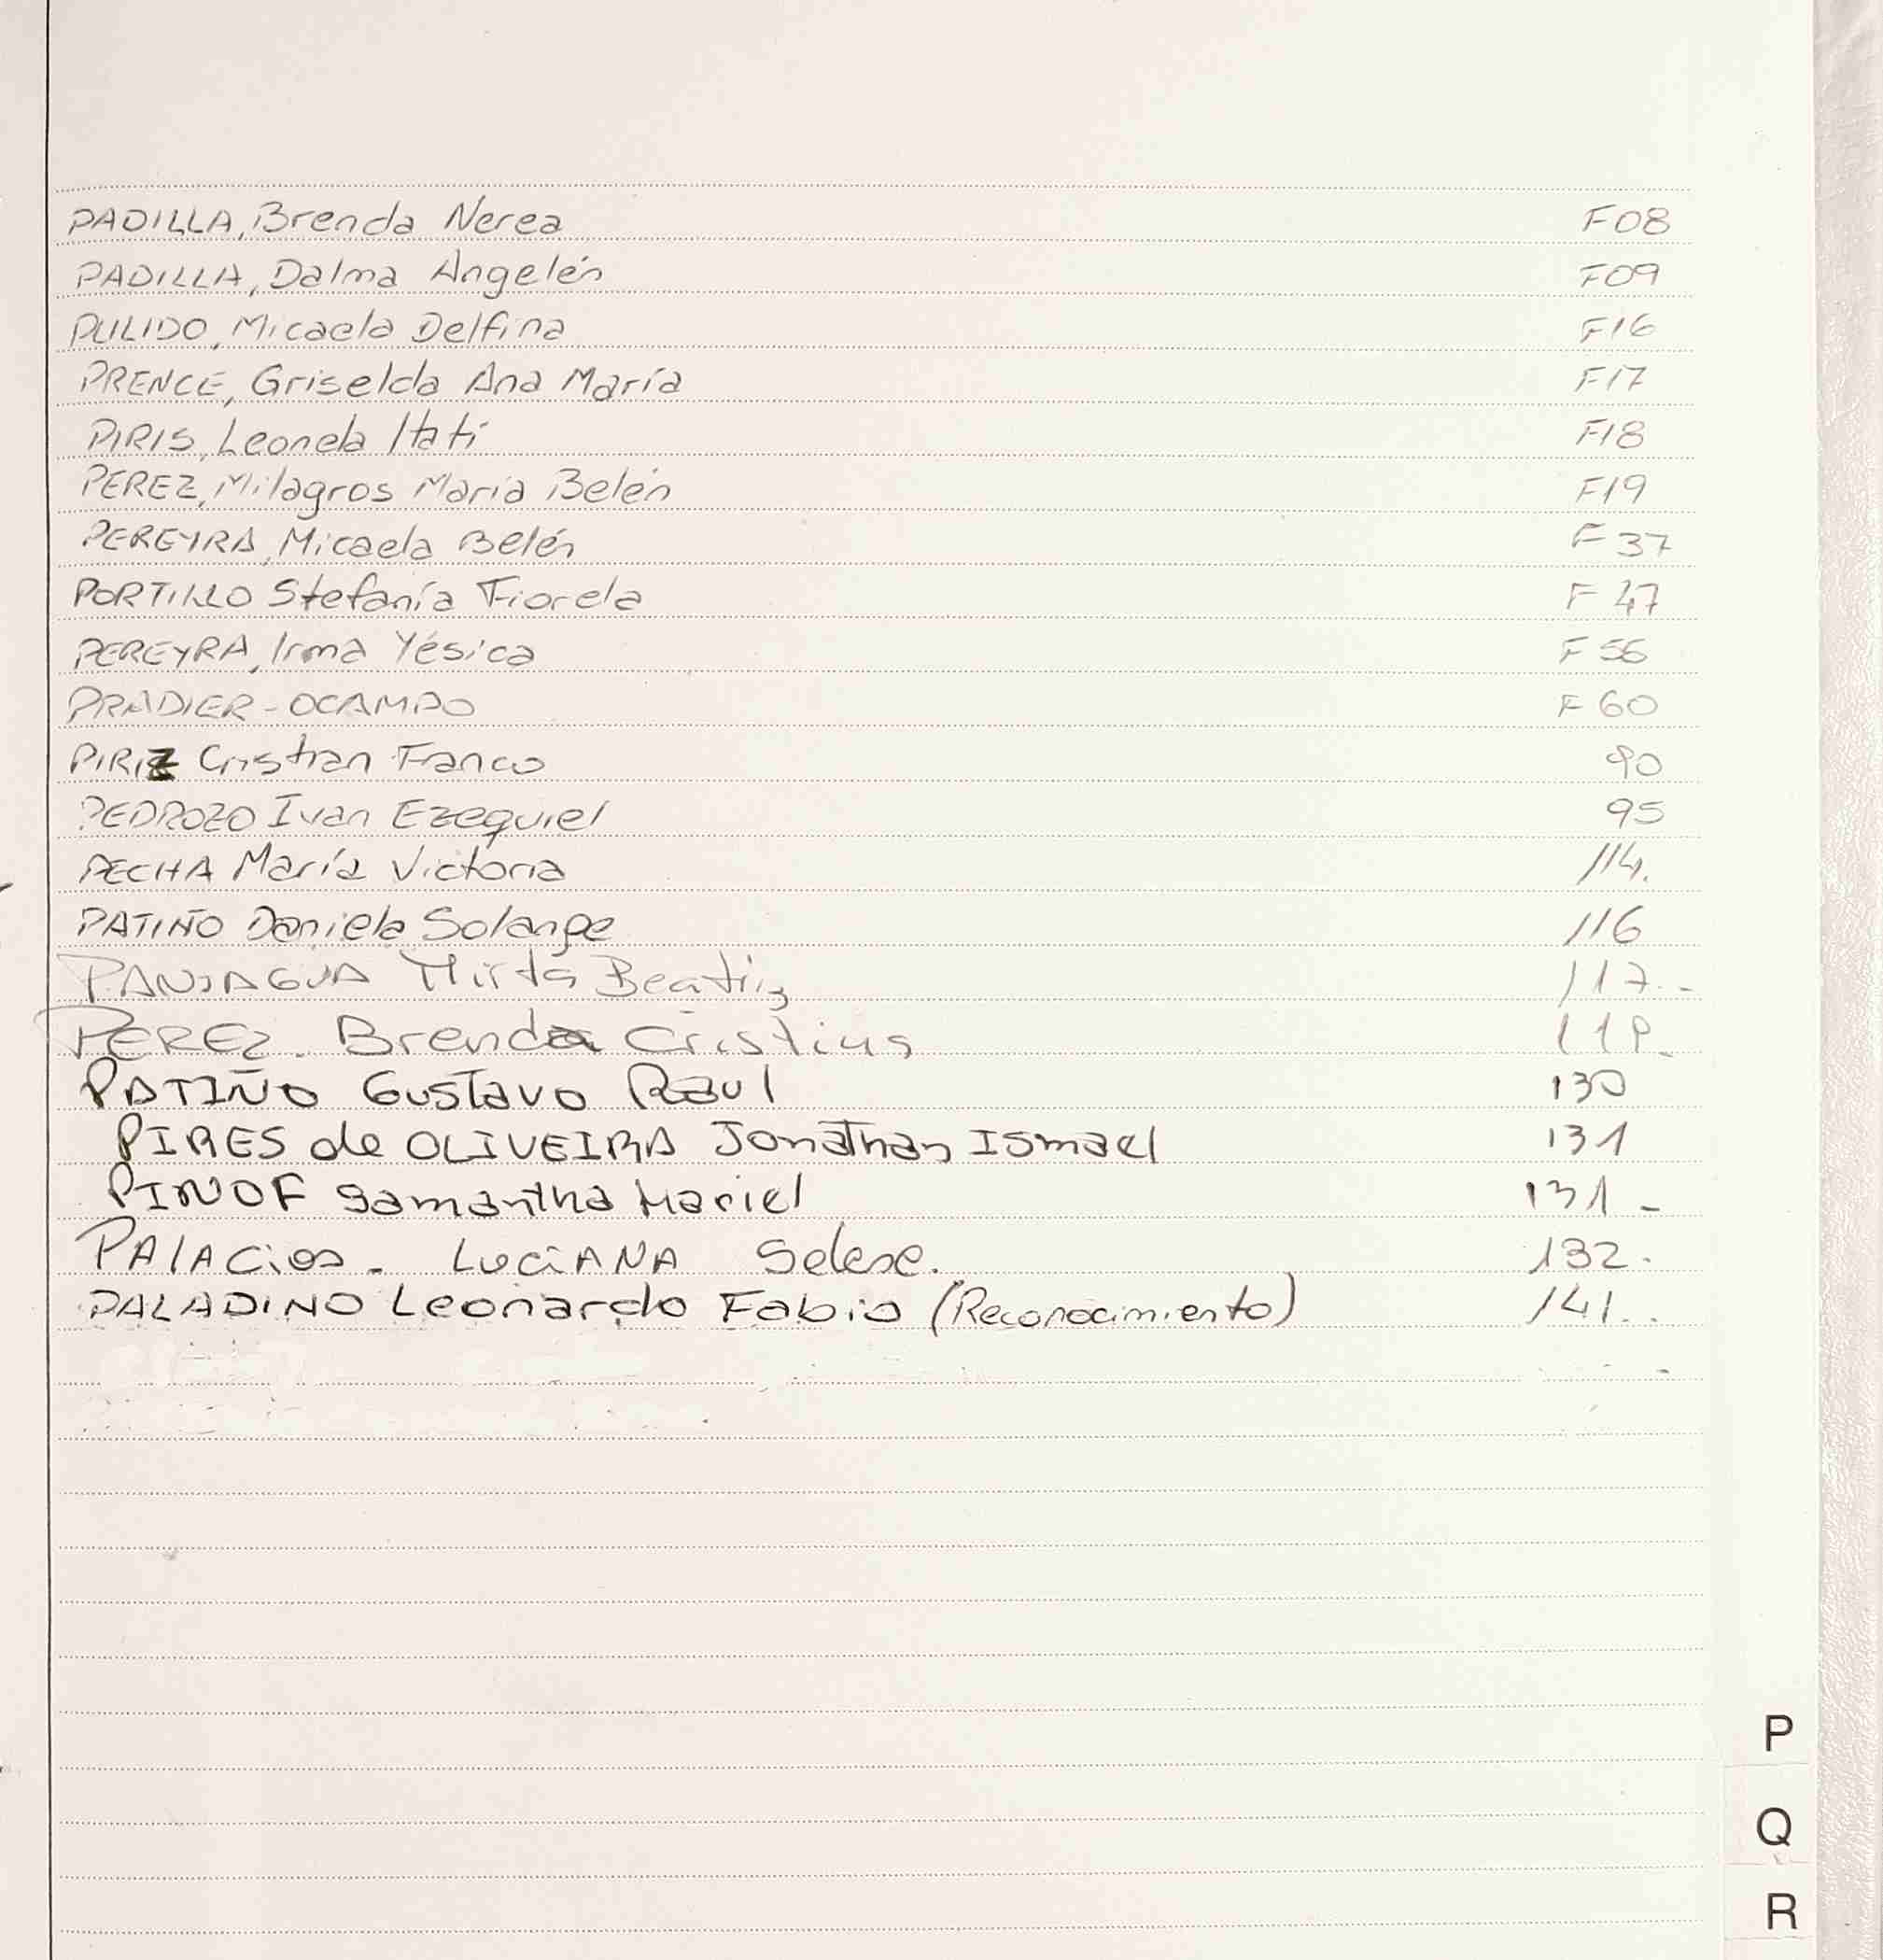 PADILLA, Brenda Nerea F08
PADILLA, Dalma Angelén F09
PULIDO, Micaela Delfina F16
PRENCE, Griselda Ana María F17
PIRIS, Leonela Itatí F18
PEREZ, Milagros María Belén F19
PEREYRA, Micaela Belén F 37
PORTILLO Stefanía Fiorela F 47
PEREYRA, Irma Yésica F 56
PRADIER - OCAMPO F 60
PIRIZ Cristian Franco 90
PEDROZO Ivan Ezequiel 95
PECHA María Victoria 114.
PATIÑO Daniela Solange 116
PANIAGUA Mirta Beatriz 117.-
PEREZ. Brenda Cristina
PATIÑO Gustavo Raul 130
PIRES de OLIVEIRA Jonathan Ismael 131
PINOF Samantha Mariel 131 -
PALACios. LuciANA Selene. 132.
PALADINO Leonardo Fabio (Reconocimiento) 141..
P
Q
R